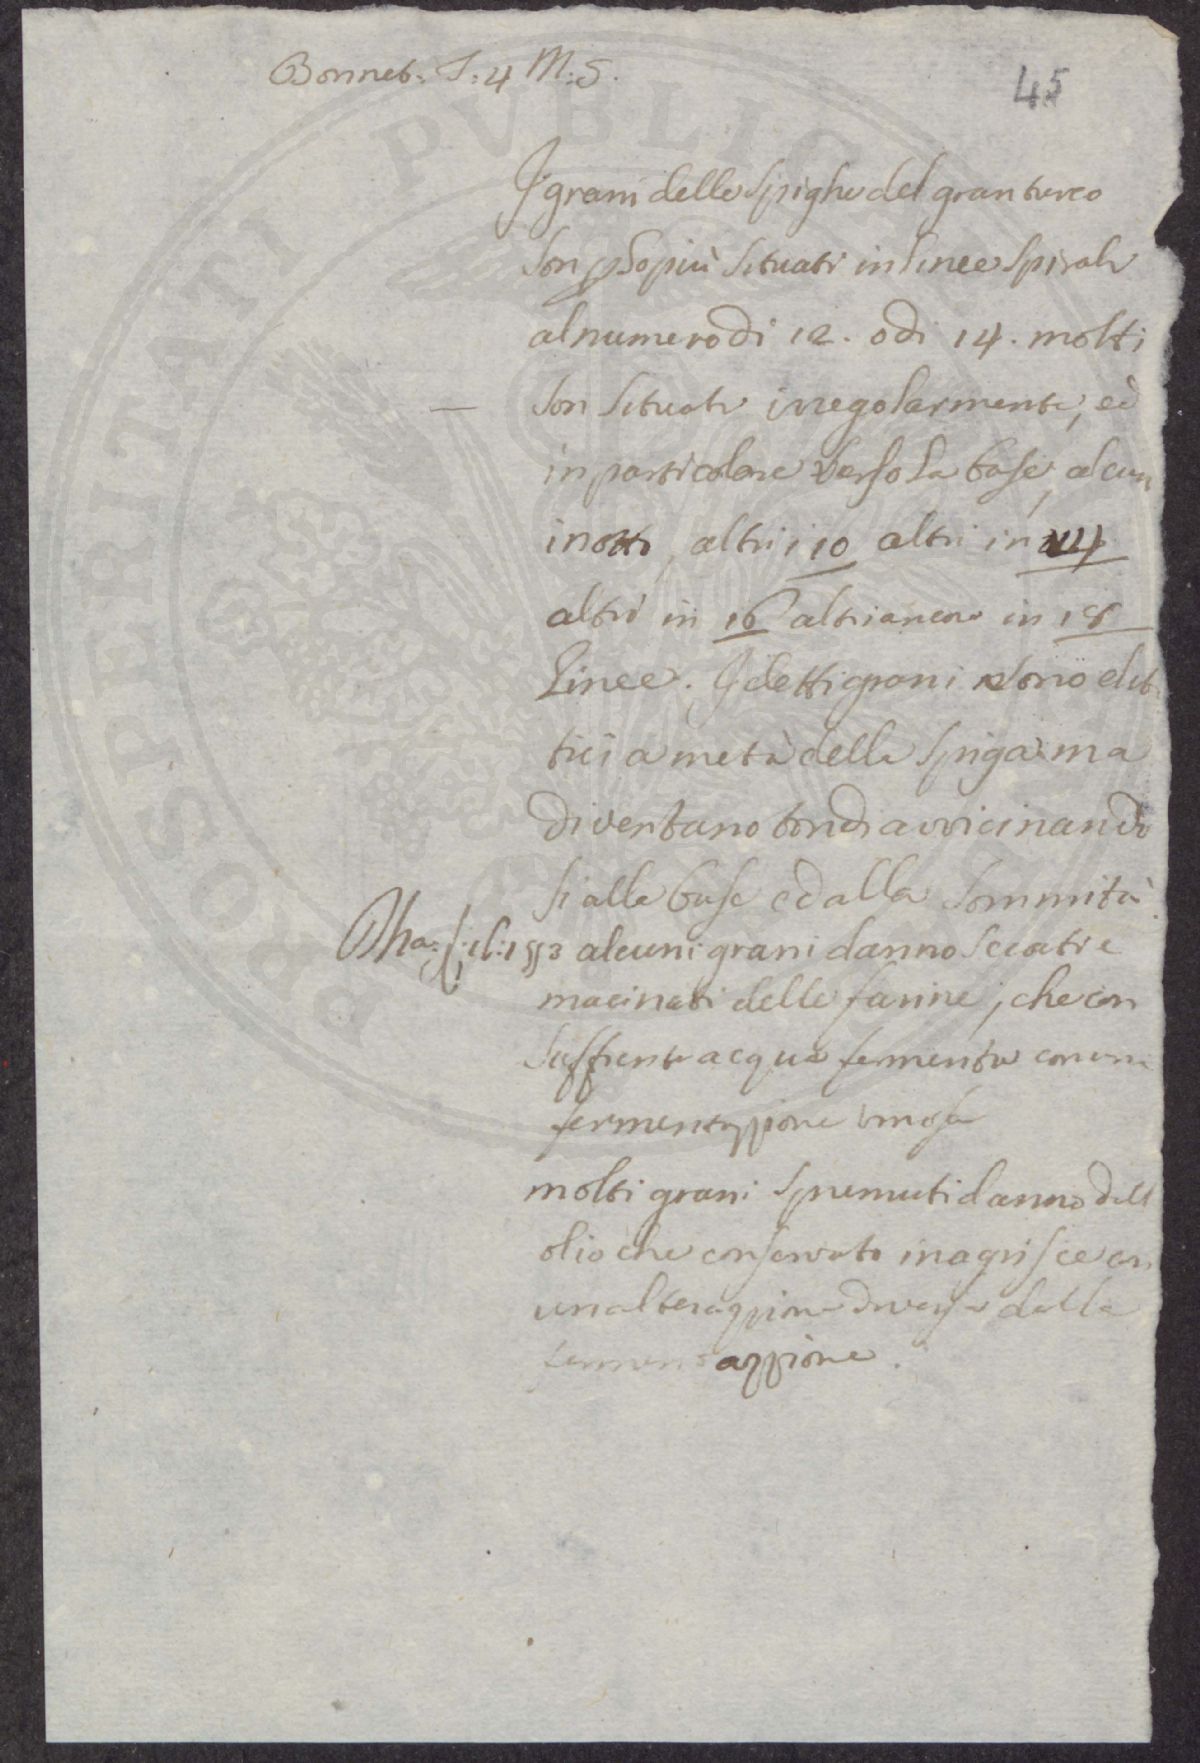 Bonnet. T: 4 M: 5.
45
I grani delle spighe del granturco
son p lo più situati in linee spirali
al numero di 12. o di 14. molti
— son situati irregolarmente, ed
in particolare verso la base, alcun
in otto, altri i 10 altri in 14
altri in 16 altri ancora in 18
Linee. I detti grani sono elit
tici a metà della spiga ma
diventano tondi avvicinando
si alla base ed alla sommità.
Pha: alcuni grani danno seccati e
macinati delle farine, che con
sufficente acqua fermenta con una
fermentazzione vinosa
molti grani spremuti danno dell
olio che conservato inagrisce con
un alterazzione diversa dalla
fermentazzione.
PROSPERITATI PVBLIC